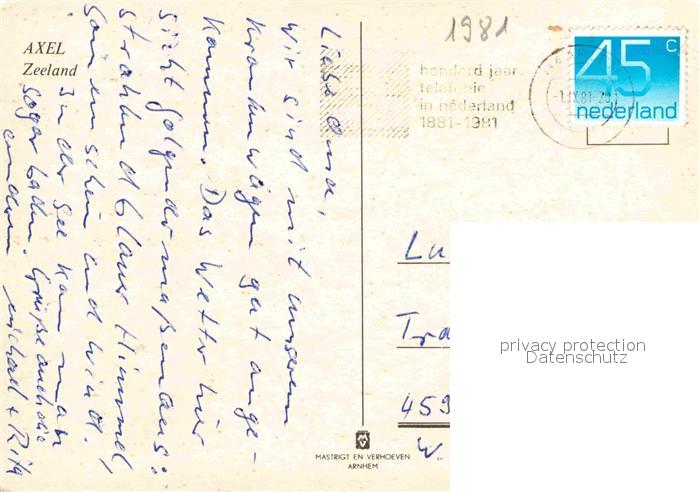 AXEL
Zeeland
1981
honderd jaar
telefonie
in nederland
1881-1981
-1.IX.81-20
45 c
nederland
Liebe Oma,
wir sind mit unserem
Krankenwagen gut ange-
kommen. Das Wetter hier
sieht folgendermaßen aus:
strahlend blauer Himmel,
Sonnenschein und Wind.
In der See kann man
sogar baden. Grüße auch die
andern Michael + Rita
Lu
Tra
459
W.
privacy protection
Datenschutz
MASTRIGT EN VERHOEVEN
ARNHEM